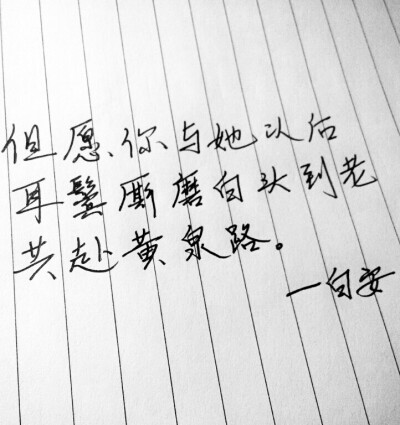 但愿你与她以后
耳鬓厮磨白头到老
共赴黄泉路。
—白安